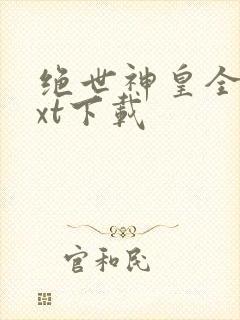 绝世神皇全
xt下载
官和民